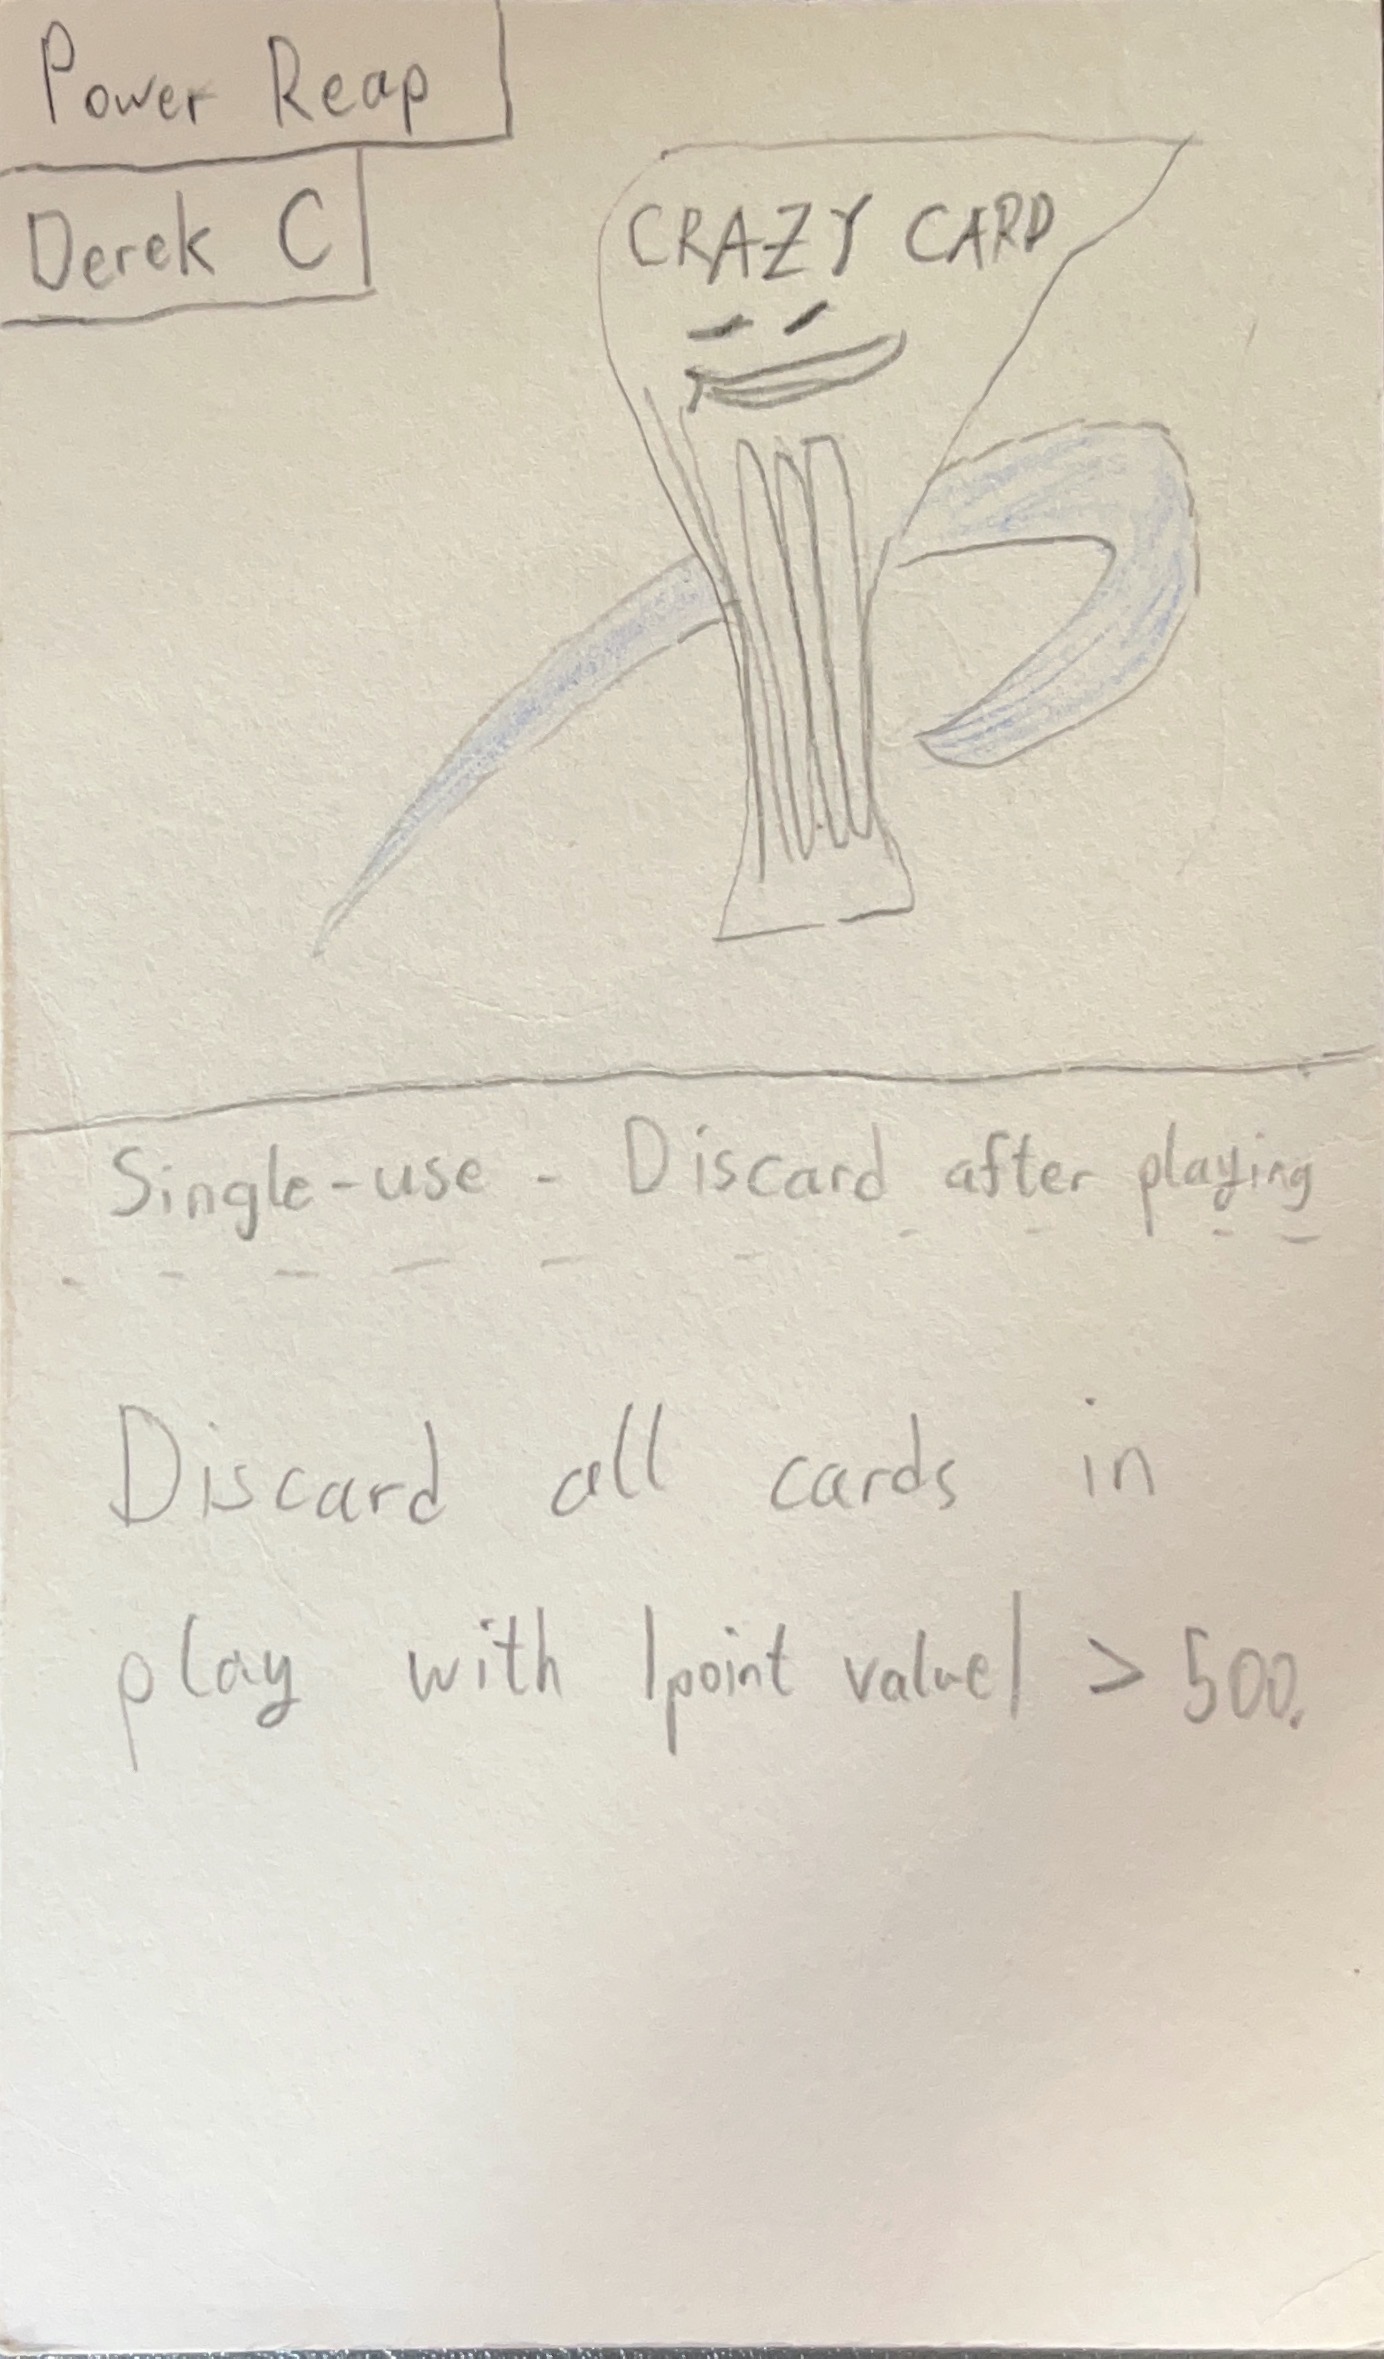 Power Reap
Derek C
CRAZY CARD
Single-use - Discard after playing
Discard all cards in
play with |point value| > 500.